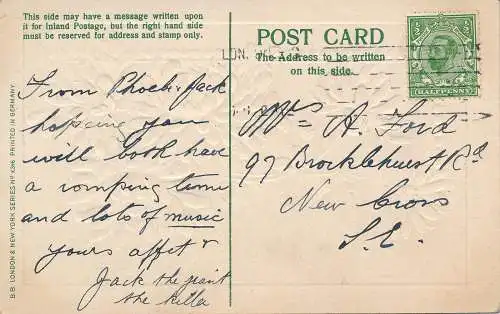 This side may have a message written upon
it for Inland Postage, but the right hand side
must be reserved for address and stamp only.
From Phoebe & Jack
hopeing you
will both have
a romping time
and lots of music
yours affect
Jack the giant
the killa
B.B. LONDON & NEW YORK SERIES
PRINTED IN GERMANY
POST CARD
The Address to be written
on this side.
LON
HALFPENNY
Mrs A. Ford
97 Brocklehurst Rd
New Cross
S.E.